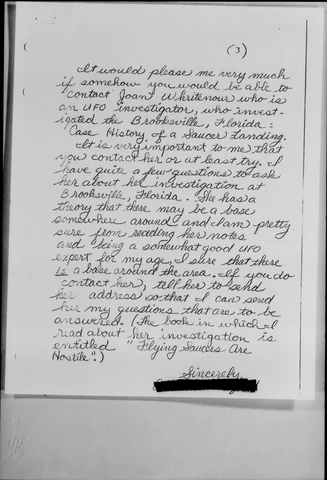 (3)
It would please me very much
if somehow you would be able to
contact Joan Whritenour who is
an UFO investigator, who invest-
igated the Brooksville, Florida:
Case History of a Saucer Landing.
It is very important to me that
you contact her or at least try. I
have quite a few questions to ask
her about her investigation at
Brooksville, Florida. She has a
theory that there may be a base
somewhere around and I am pretty
sure from reading her notes
and being a somewhat good UFO
expert for my age, I sure that there
is a base around the area. If you do
contact her, tell her to send
her address so that I can send
her my questions that are to be
answered. (The book in which I
read about her investigation is
entitled "Flying Saucers Are
Hostile".)
Sincerely,